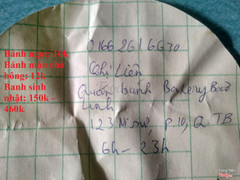 Bánh ngọt: 10k
Bánh mì
bông: 12k
Bánh sinh
nhật: 150k –
460k
0166 261 6630
Chị Liên
Quán bánh Bakery Bảo
Linh
123 Ni sư, p.10, Q TB
6h - 23h